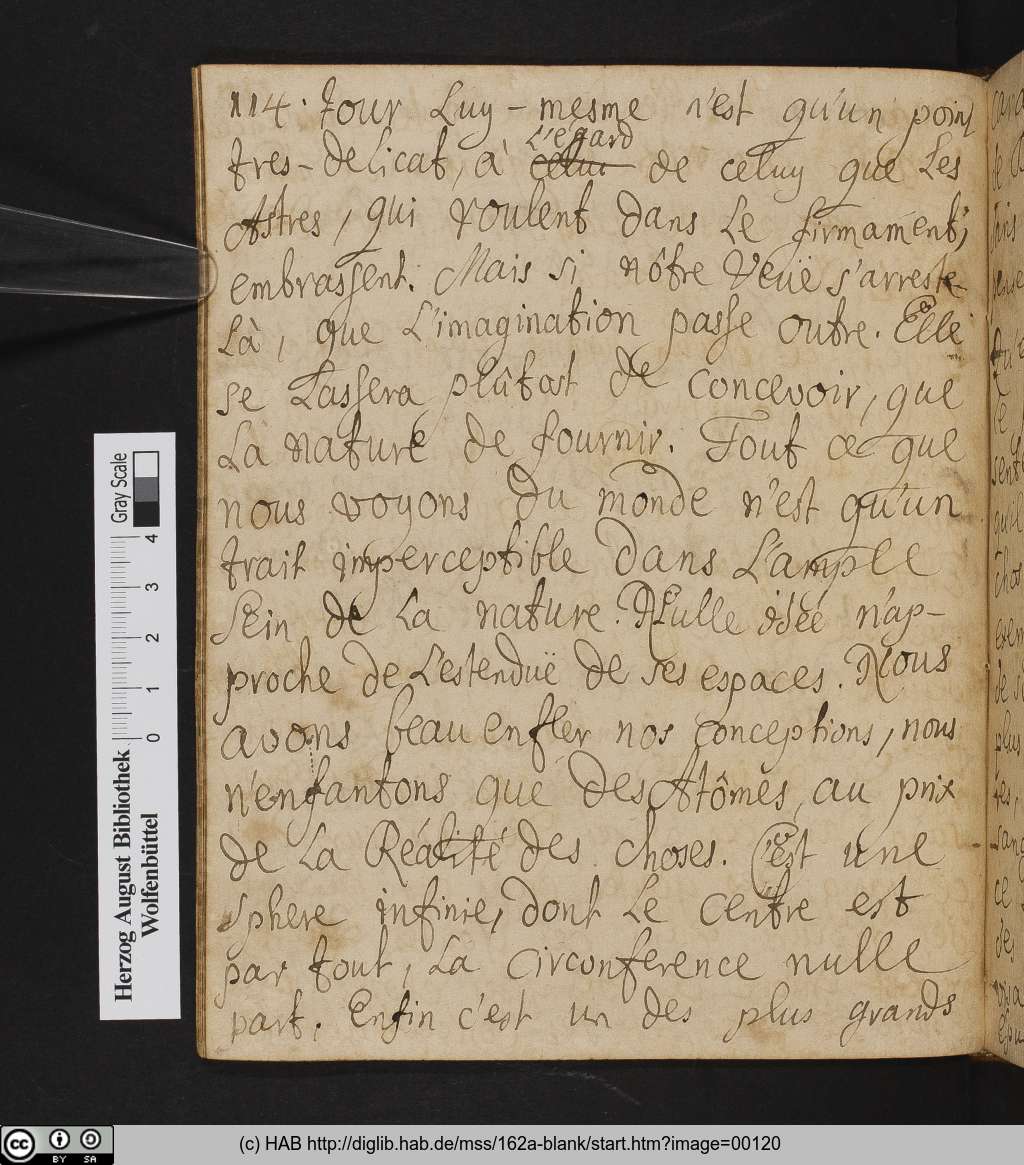 114. tour Luy-mesme n'est qu'un point
L'egard
tres-delicat, à celui de celuy que Les
Astres, qui roulent dans Le firmament,
embrassent. Mais si nôtre Veuë s'arreste
Là, que L'imagination passe outre. Elle
se Lassera plûtost de concevoir, que
La nature de fournir. Tout ce que
nous voyons du monde n'est qu'un
trait imperceptible dans L'ample
Sein de La nature. Nulle idée n'ap-
proche de L'estenduë de ses espaces. Nous
avons beau enfler nos conceptions, nous
n'enfantons que des Atômes, au prix
de La Réalité des choses. C'est une
sphere infinie, dont Le centre est
par tout, La circonference nulle
part. Enfin c'est un des plus grands
Gray Scale
0 1 2 3 4
Herzog August Bibliothek
Wolfenbüttel
cc BY SA
(c) HAB http://diglib.hab.de/mss/162a-blank/start.htm?image=00120